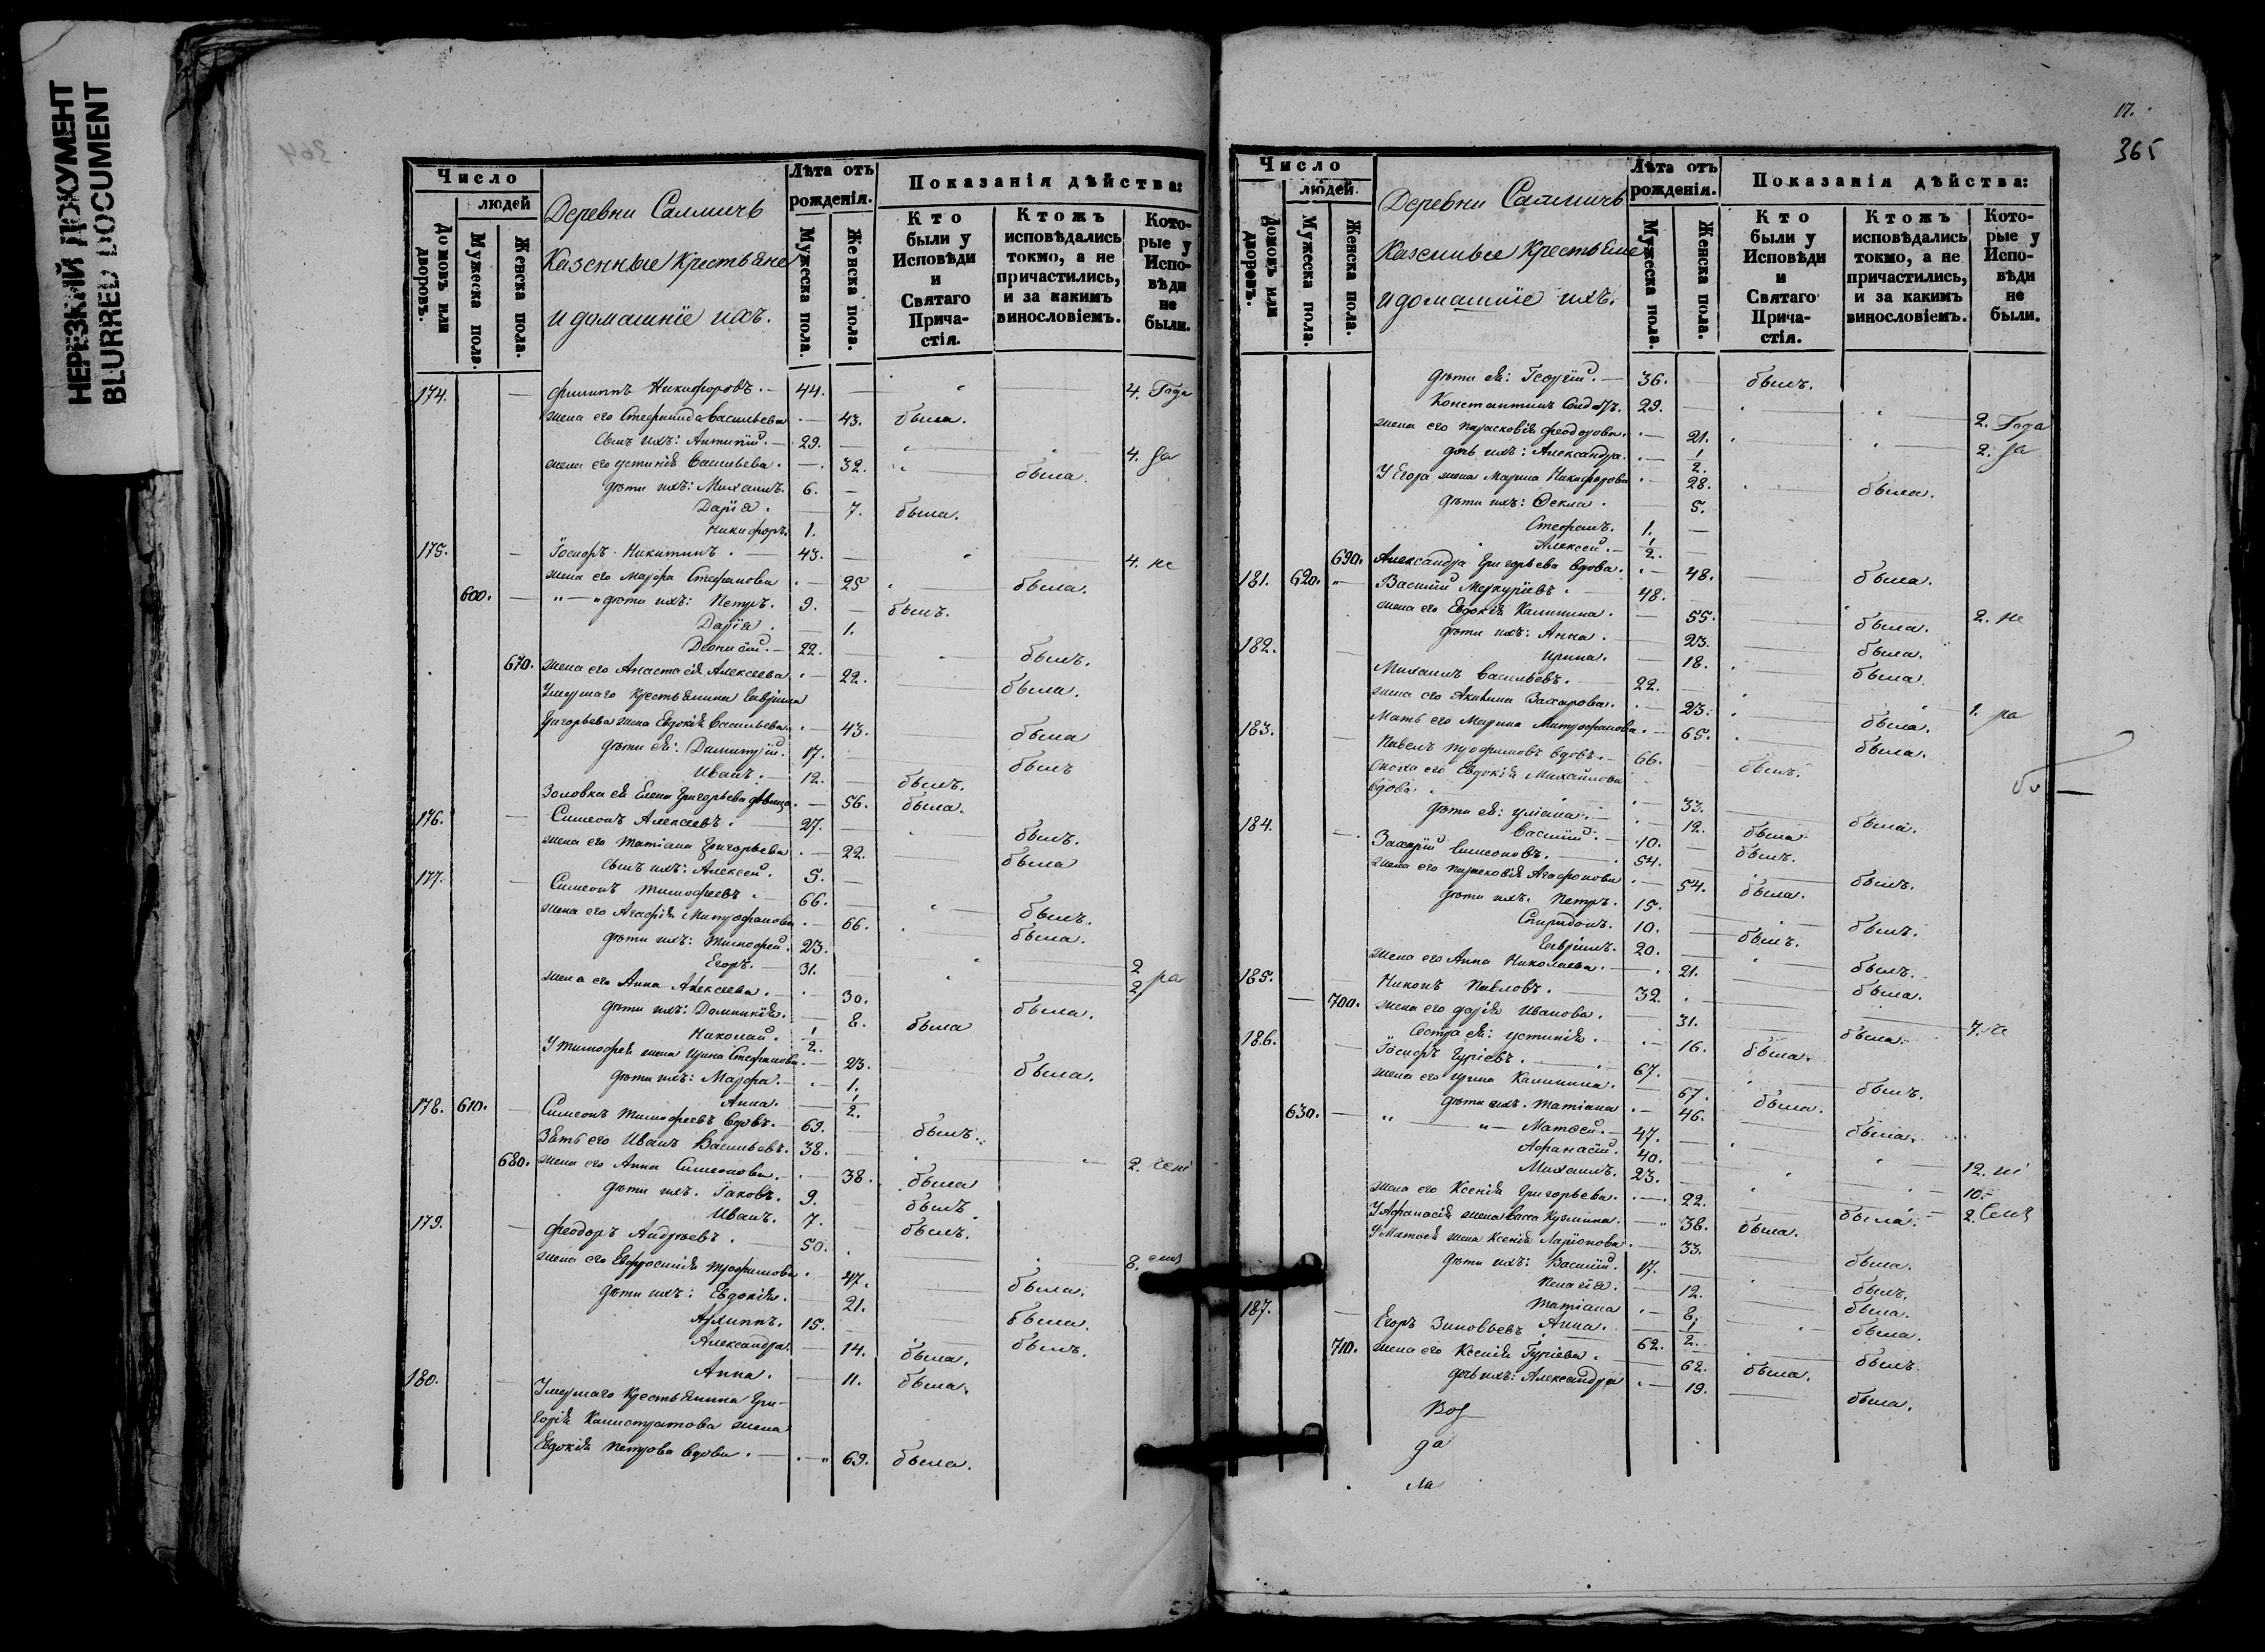 НЕРЕЗКИЙ ДОКУМЕНТ
BLURRED DOCUMENT
Число
людей
Домовъ или дворовъ.
Мужеска пола.
Женска пола.
Деревни Салмичь
Казенные Крестьяне
и домашніе ихъ.
Лѣта отъ рожденія.
Мужеска пола.
Женска пола.
Показанія дѣйства:
Кто были у Исповѣди и Святаго Причастія.
Ктожъ исповѣдались токмо, а не причастились, и за какимъ винословіемъ.
Которые у Исповѣди не были.
174. Филиппъ Никифоровъ. 44. 4. Года
жена его Стефанида Васильева 43. была.
сынъ ихъ: Антипій. 29. 4.
жена его Устинія Васильева. 32. была.
дѣти ихъ: Михаилъ. 6.
Дарія. 7. была.
Никифоръ. 1.
175. Іосифъ Никитинъ. 43. 4.
жена его Марфа Стефанова 25 была.
600. дѣти ихъ: Петръ. 9. былъ.
Дарія. 1.
Деонисій. 22. былъ.
670. жена его Анастасія Алексеева 22. была.
Умершаго крестьянина Гавріила
Григорьева жена Евдокія Васильева 43. была
дѣти ея: Димитрій. 17. былъ
Иванъ. 12. былъ.
Золовка ея Елена Григорьева дѣвица. 56. была.
176. Симеонъ Алексеевъ. 27. былъ.
жена его Татіана Григорьева 22. была
сынъ ихъ: Алексей. 5.
177. Симеонъ Тимофеевъ. 66. былъ.
жена его Агафія Митрофанова 66. была.
дѣти ихъ: Тимофей. 23. 2
Егоръ. 31. 2
жена его Анна Алексеева. 30. была.
дѣти ихъ: Домникія. 8. была
Николай. 1/2.
У Тимофея жена Ирина Стефанова 23. была.
дѣти ихъ: Марфа. 1.
Анна. 1/2.
178. 610. Симеонъ Тимофеевъ вдовъ. 69. былъ.
Зять его Иванъ Васильевъ. 38. 2.
680. жена его Анна Симеонова. 38. была
дѣти ихъ. Іаковъ. 9. былъ.
Иванъ. 7. былъ.
179. Феодоръ Андреевъ. 50. 8.
жена его Евфросинія Трофимова 47. была.
дѣти ихъ: Евдокія. 21. была.
Архиппъ. 15. былъ.
Александра. 14. была.
Анна. 11. была.
180. Умершаго крестьянина Гри-
горія Калистратова жена
Евдокія Петрова вдова. 69. была.
17.
365
Число
людей
Домовъ или дворовъ.
Мужеска пола.
Женска пола.
Деревни Салмичь
Казенные Крестьяне
и домашніе ихъ.
Лѣта отъ рожденія.
Мужеска пола.
Женска пола.
Показанія дѣйства:
Кто были у Исповѣди и Святаго Причастія.
Ктожъ исповѣдались токмо, а не причастились, и за какимъ винословіемъ.
Которые у Исповѣди не были.
дѣти ея: Георгій. 36. былъ.
Константинъ Солдатъ. 29. 2. Года
жена его Парасковія Феодорова. 21. 2.
дочь ихъ: Александра. 1/2.
У Егора жена Марина Никифорова 28. была.
дѣти ихъ: Фекла. 5.
Стефанъ. 1.
Алексей. 1/2.
690. Александра Григорьева вдова. 48. была.
181. 620. Василій Меркуріевъ. 48. 2.
жена его Евдокія Калинина. 55. была.
дѣти ихъ: Анна. 23. была.
Ирина. 18. была.
182. Михаилъ Васильевъ. 22. 1.
жена его Акилина Захарова. 23. была.
Мать его Марина Митрофанова. 65. была.
183. Павелъ Трофимовъ вдовъ. 66. былъ.
Сноха его Евдокія Михайлова
вдова. 33. была.
дѣти ея: Уліана. 12. была
Василій. 10. былъ.
184. Захарій Симеоновъ. 54. былъ.
жена его Парасковія Агафонова 54. была.
дѣти ихъ. Петръ. 15. былъ.
Спиридонъ. 10. былъ.
Гавріилъ. 20. былъ.
жена его Анна Николаева. 21. была.
185. Никонъ Павловъ. 32. 7.
700. жена его Дарія Иванова. 31. была.
Сестра ея: Устинія. 16. была.
186. Іосифъ Гуріевъ. 67. былъ.
жена его Ирина Калинина. 67. была.
дѣти ихъ. Татіана 46. была.
630. Матвей. 47. 12.
Афанасій. 40. 10.
Михаилъ. 23. 2.
жена его Ксенія Григорьева. 22. была.
У Афанасія жена Васса Кузмина. 38. была.
У Матвея жена Ксенія Ларіонова 33. была.
дѣти ихъ: Василій. 17. былъ.
Пелагія. 12. была.
Татіана 8. была.
Анна. 1/2.
187. Егоръ Зиновьевъ 62. былъ.
710. жена его Ксенія Гуріева. 62. была.
дочь ихъ: Александра 19. была.